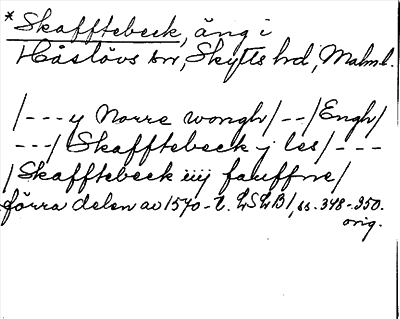 *Skafftebeck, äng i
Håslövs sn, Skytts hd, Malml.
/--- y Norre wongh/--/Engh/
---/ Skafftebeck j les/---
/Skafftebeck iiij fauffne/
förra delen av 1540-t. LSLB1, ss. 348-350.
orig.